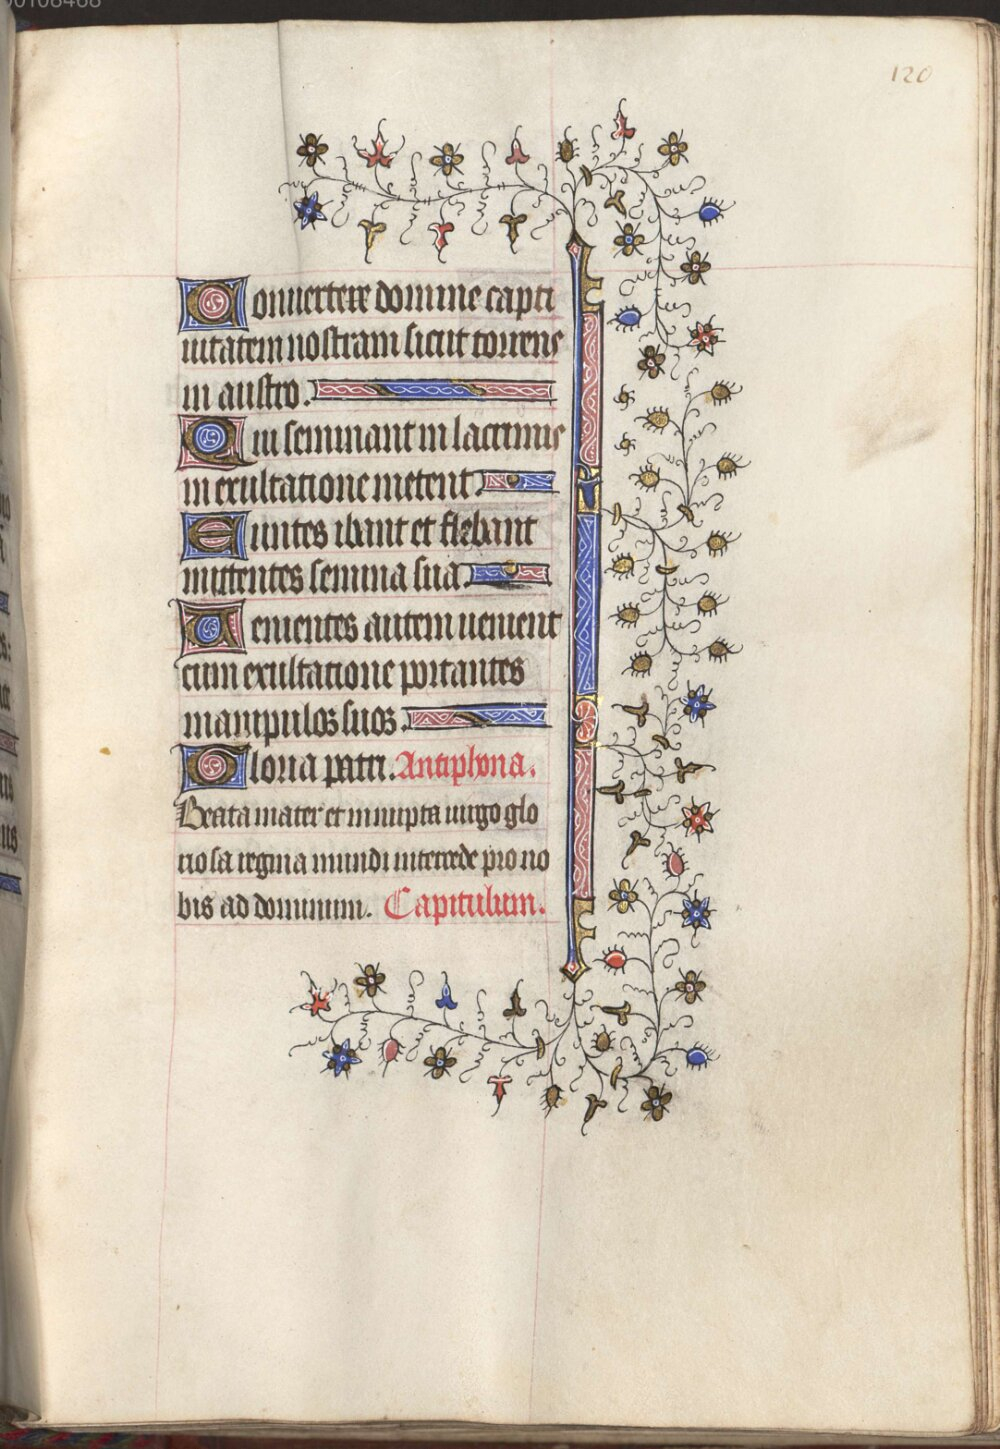 120
Conuertere domine capti
uitatem nostram sicut torrens
in austro.
Qui seminant in lacrimis
in exultatione metent.
Euntes ibant et flebant
mittentes semina sua.
Uenientes autem uenient
cum exultatione portantes
manipulos suos.
Gloria patri. Antiphona.
Beata mater et innupta uirgo glo
riosa regina mundi intercede pro no
bis ad dominum. Capitulum.